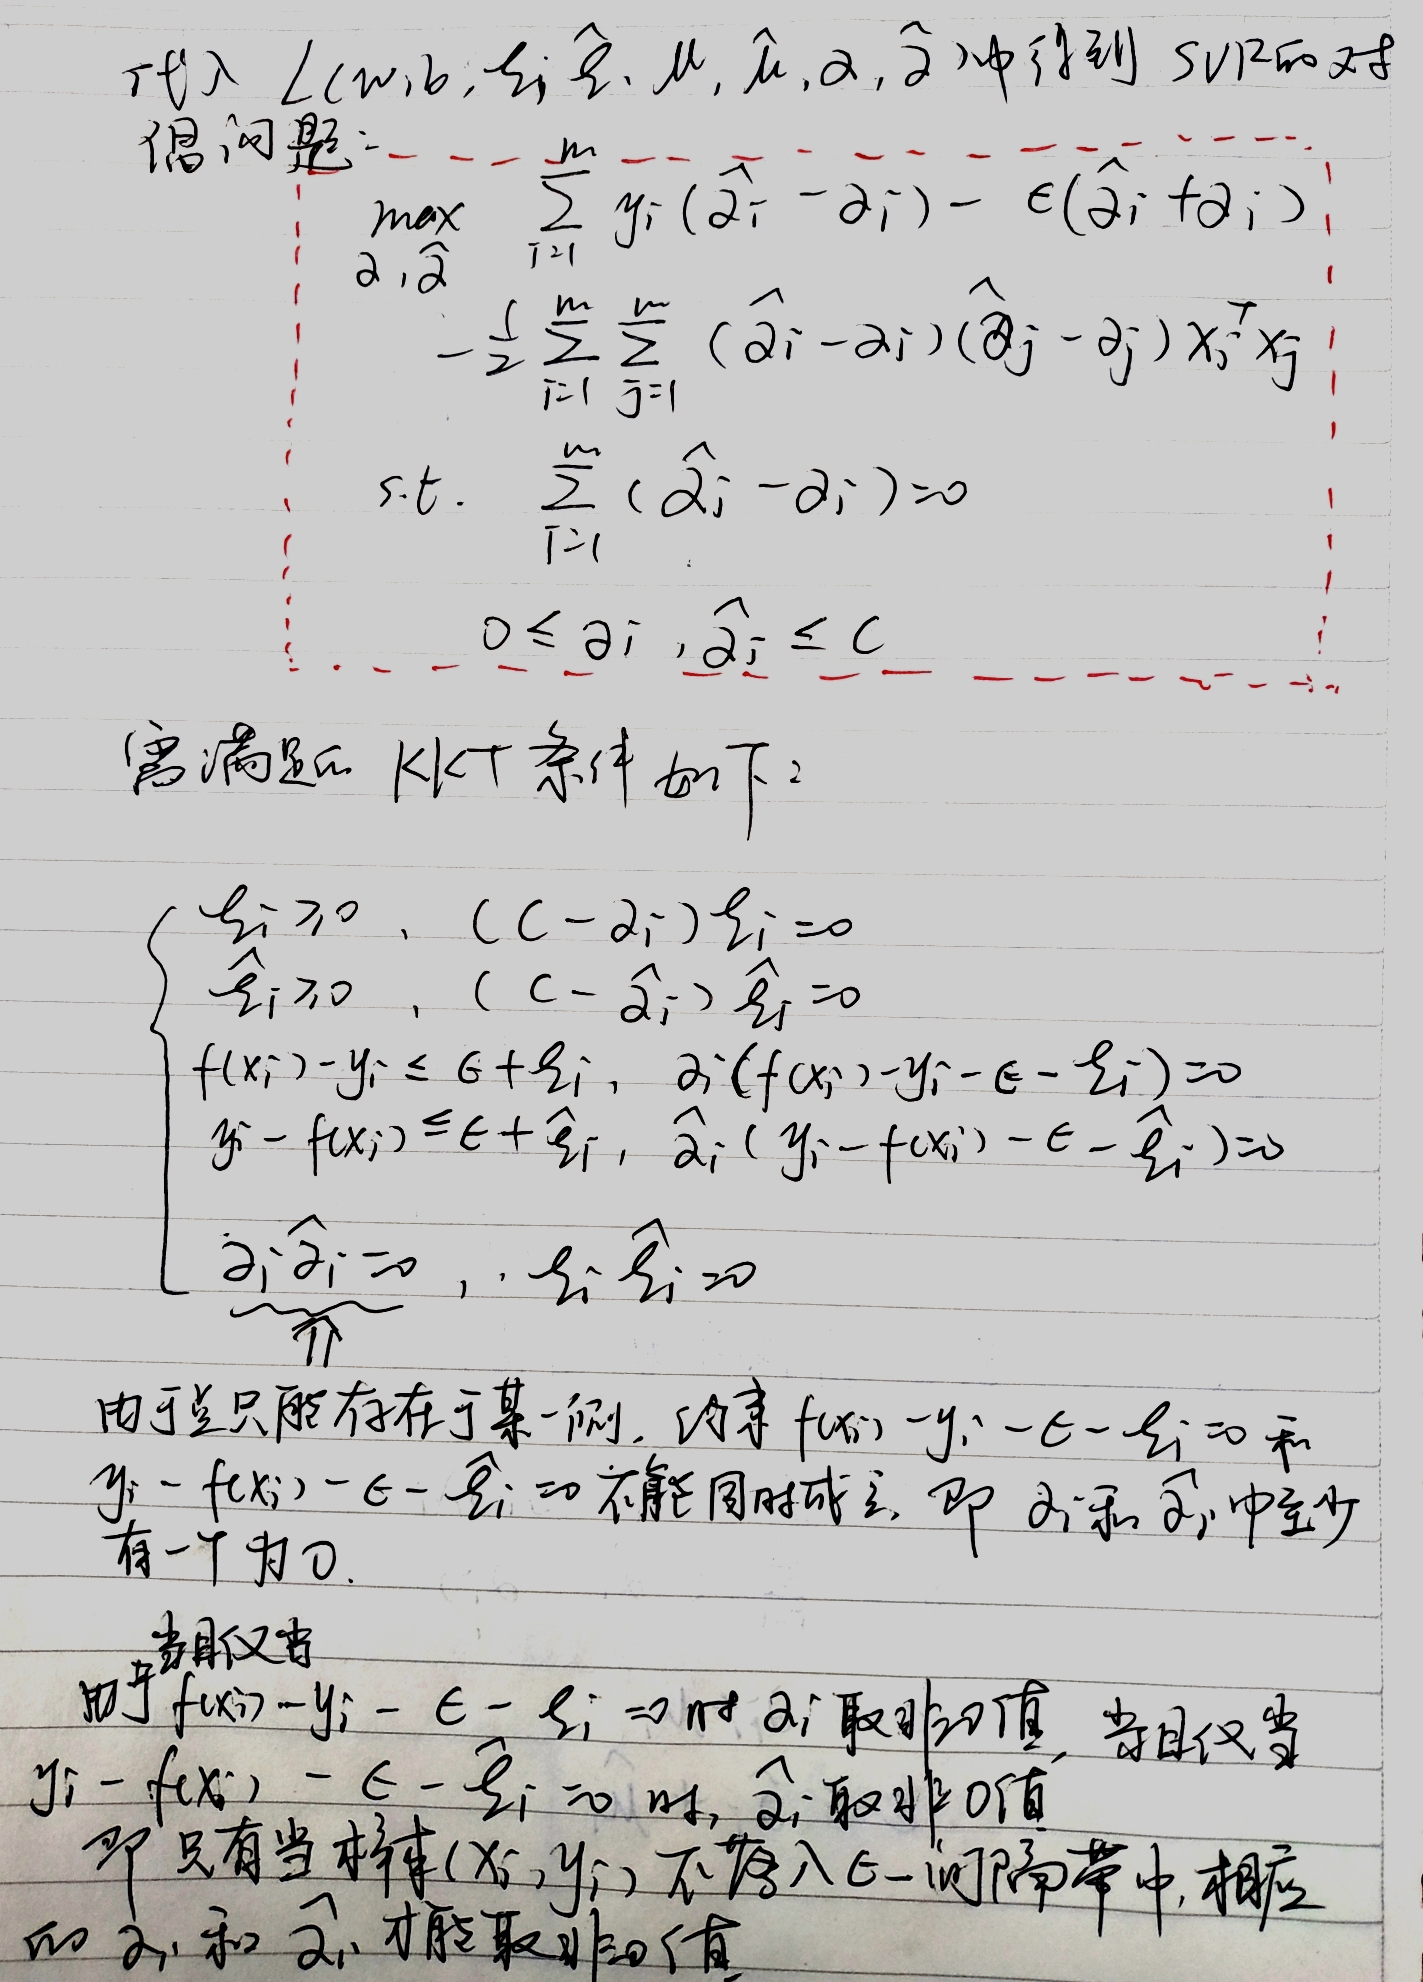 代入 L(w,b,ξi ξ̂, μ, μ̂, α, α̂)中得到 SVR的对
偶问题:
max α,α̂ Σ_{i=1}^{m} yi(α̂i - αi) - ϵ(α̂i + αi)
- 1/2 Σ_{i=1}^{m} Σ_{j=1}^{m} (α̂i - αi)(α̂j - αj) xi^T xj
s.t. Σ_{i=1}^{m} (α̂i - αi) = 0
0 ≤ αi , α̂i ≤ C
需满足的 KKT 条件如下:
ξi ≥ 0 , (C - αi) ξi = 0
ξ̂i ≥ 0 , (C - α̂i) ξ̂i = 0
f(xi) - yi ≤ ϵ + ξi , αi(f(xi) - yi - ϵ - ξi) = 0
yi - f(xi) ≤ ϵ + ξ̂i , α̂i(yi - f(xi) - ϵ - ξ̂i) = 0
αi α̂i = 0 , ξi ξ̂i = 0
⇑
由于点只能存在于某一侧, 约束 f(xi) - yi - ϵ - ξi = 0 和
yi - f(xi) - ϵ - ξ̂i = 0 不能同时成立, 即 αi和 α̂i 中至少
有一个为0.
当且仅当
由于 f(xi) - yi - ϵ - ξi = 0 时 αi 取非0值, 当且仅当
yi - f(xi) - ϵ - ξ̂i = 0 时, α̂i 取非0值
即 只有当样本(xi, yi) 不落入 ϵ-间隔带中, 相应
的 αi 和 α̂i 才能取非0值